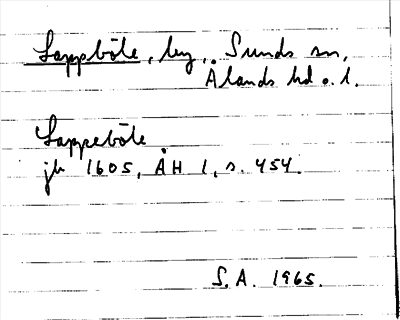 Lappböte, by, Sunds sn,
Ålands hd o. l.
Lappeböte
jb 1605, ÅH 1, s. 454.
S. A. 1965.